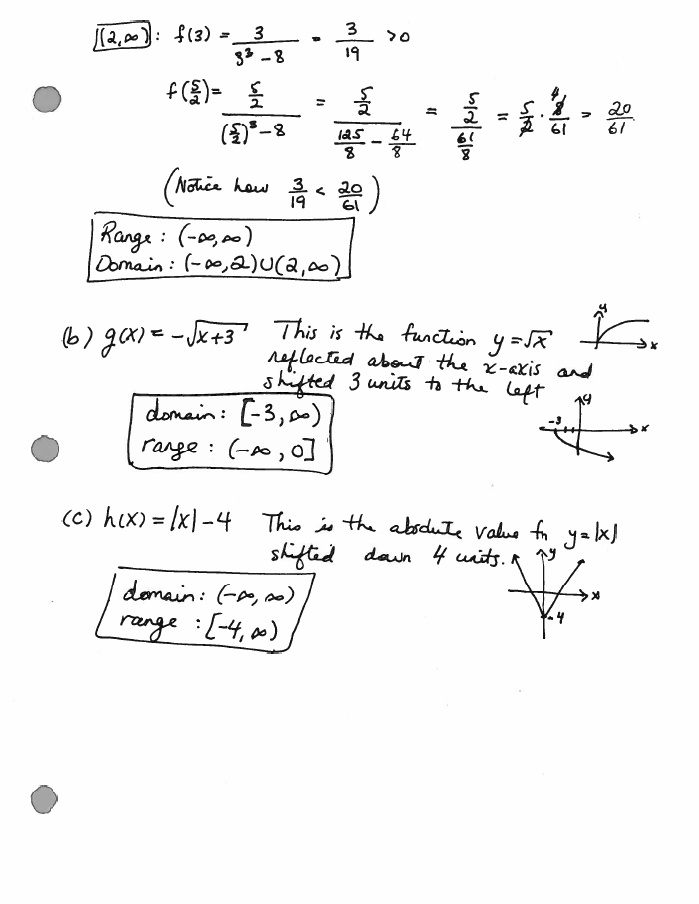 (2,∞): f(3) = 3/(3³ - 8) = 3/19 > 0
f(5/2) = (5/2)/((5/2)³ - 8) = (5/2)/(125/8 - 64/8) = (5/2)/(61/8) = 5/2 · 8/61 = 20/61.
4
(Notice how 3/19 < 20/61)
Range: (-∞,∞)
Domain: (-∞,2)∪(2,∞)
(b) g(x) = -√(x+3) This is the function y = √x
reflected about the x-axis and
shifted 3 units to the left
y
x
domain: [-3, ∞)
range: (-∞, 0]
y
-3
x
(c) h(x) = |x| - 4 This is the absolute value fn y = |x|
shifted down 4 units.
y
x
-4
domain: (-∞, ∞)
range: [-4, ∞)